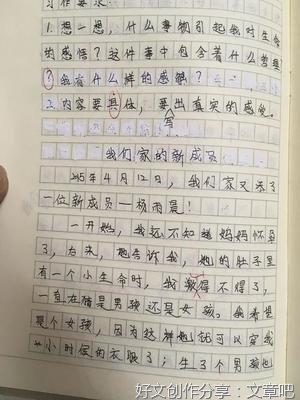 习作要求:
1.想一想,什么事物引起我对生命
的感悟?这件事中包含着什么哲理
?我有什么样的感触?
2.内容要具体,要写出真实的感受。
我们家的新成员
2015年4月12日,我们家又添了
一位新成员—杨雨晨!
一开始,我还不知道妈妈怀孕
了,后来,她告诉我,她的肚子里
有一个小生命时,我激得不得了,
一直在猜是男孩还是女孩。我希望
是个女孩,因为这样她就可以穿我
小时候的衣服了;生了个男孩也
好文创作分享:文章吧